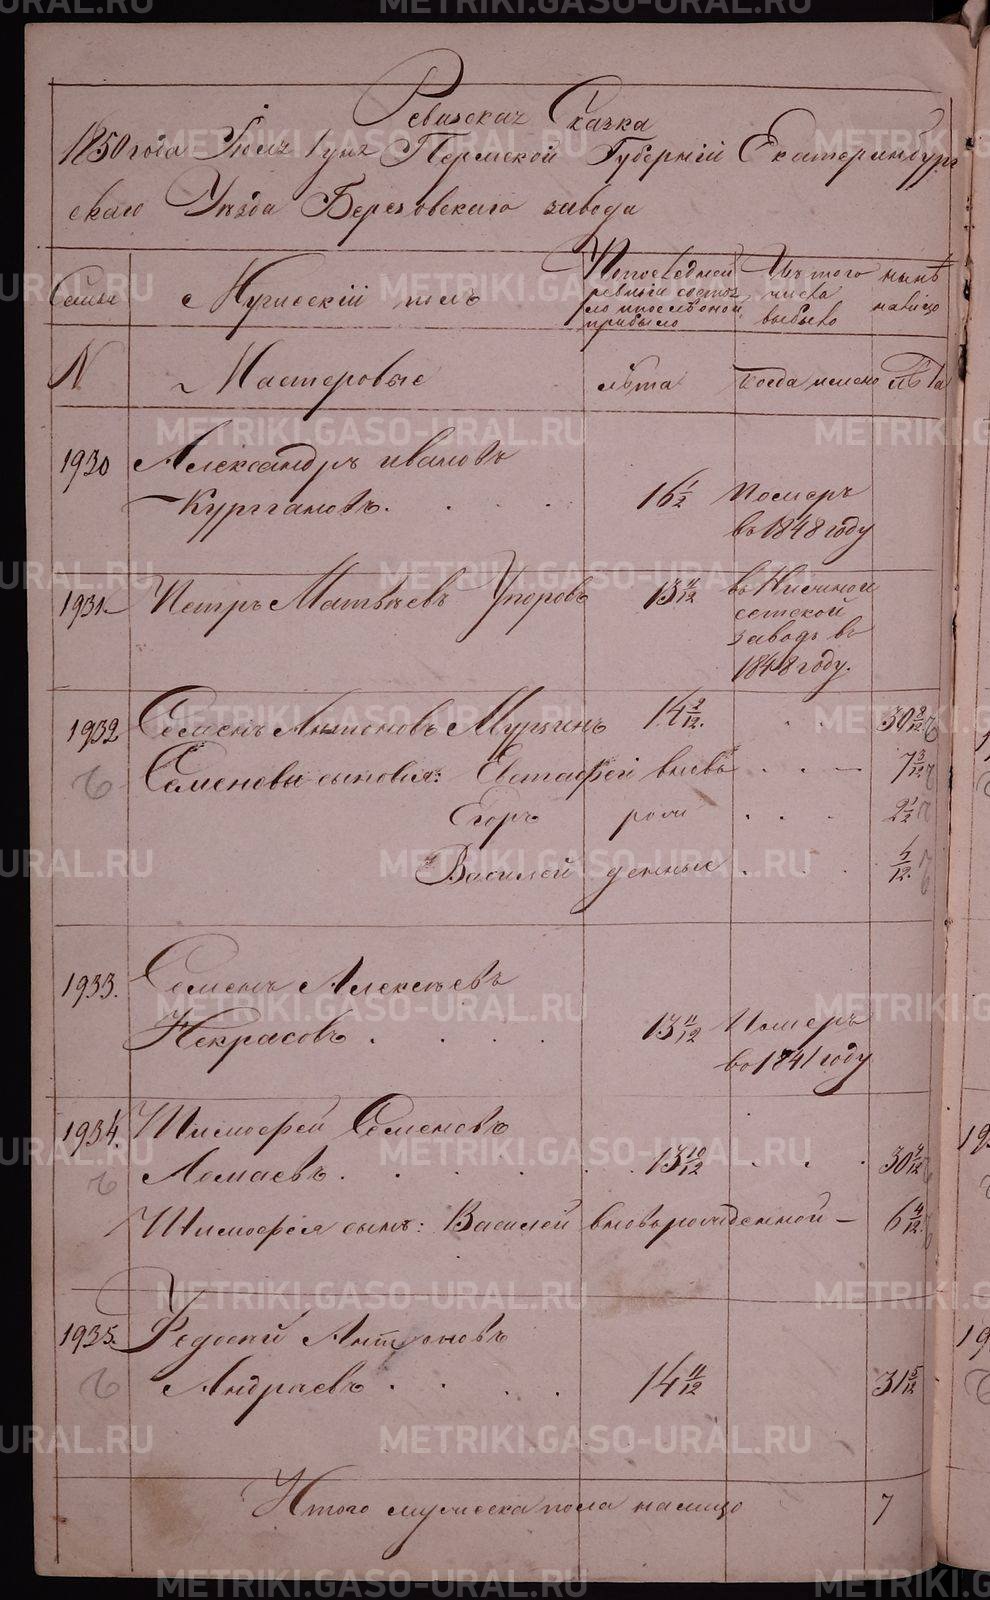 Ревизская Сказка
1850 года Іюля 1 дня Пермской Губерніи Екатеринбург
скаго Уезда Березовскаго завода
Семьи
Мужескій полъ
По последней ревизіи состоя ло и после оной прибыло
Изъ того числа выбыло
ныне на лицо
N
Мастеровые
лѣта
Когда именно
лѣта
1930 Александръ ивановъ
Кургановъ. 16 1/2 Померъ
въ 1848 году
1931 Петръ Матвѣевъ Упоровъ 13 11/12 въ Нижной
сетской
заводъ въ
1848 году.
1932 Семенъ Антоновъ Мурзинъ 14 2/12. 30 9/12
Семеновы сыновья: Евстафей вновь 7 3/12
Егоръ рож 2 1/2
Василей денные 5/12.
1933. Семенъ Алексѣевъ
Некрасовъ 13 11/12 Померъ
во 1841 году
1934. Тимофей Семеновъ
Ломаевъ 13 10/12 30 4/12
Тимофея сынъ: Василей вновьрожденной – 6 4/12
1935. Федосей Антоновъ
Андреевъ 14 11/12 31 5/12
Итого мужеска пола налицо 7
METRIKI.GASO-URAL.RU